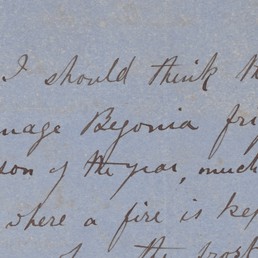 I should think th
nage Begonia fri
son of the year, much
where a fire is kep
the frost